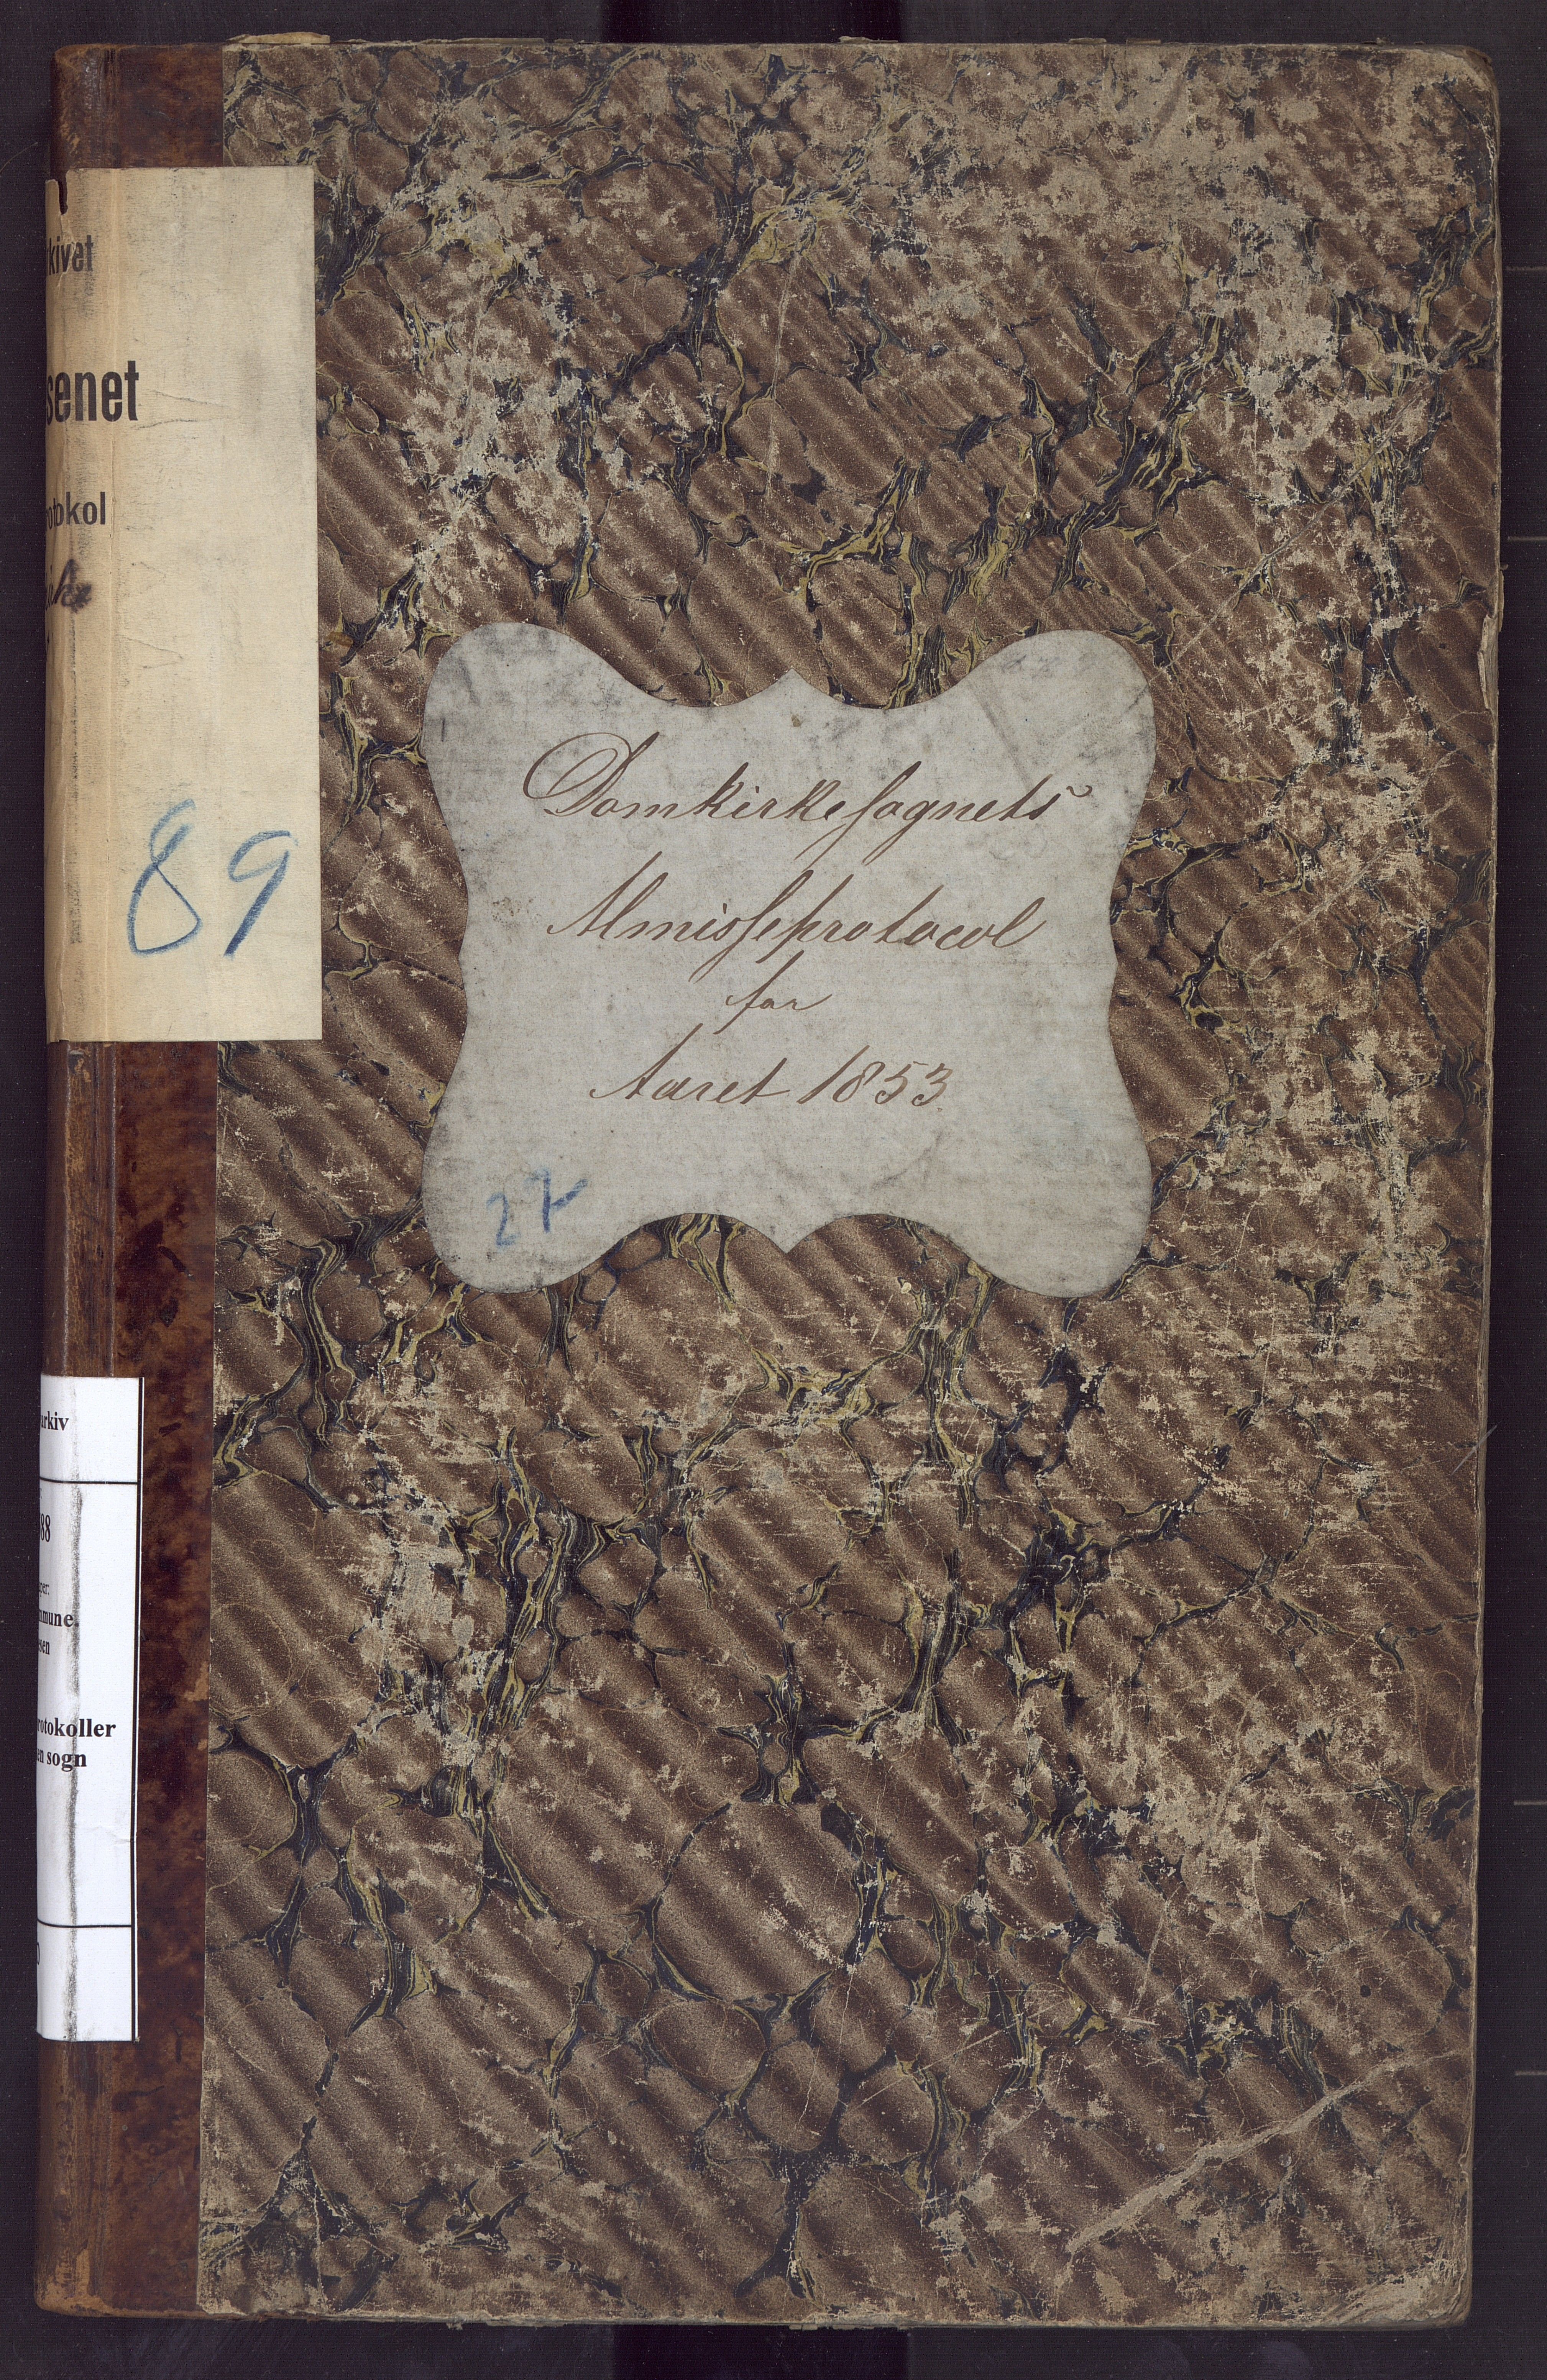 kivet
senet
otokol
89
Domkirkesognets
Almisseprotocol
for
Aaret 1853.
27
arkiv
88
per:
mmune.
esen
rotokoller
en sogn
0